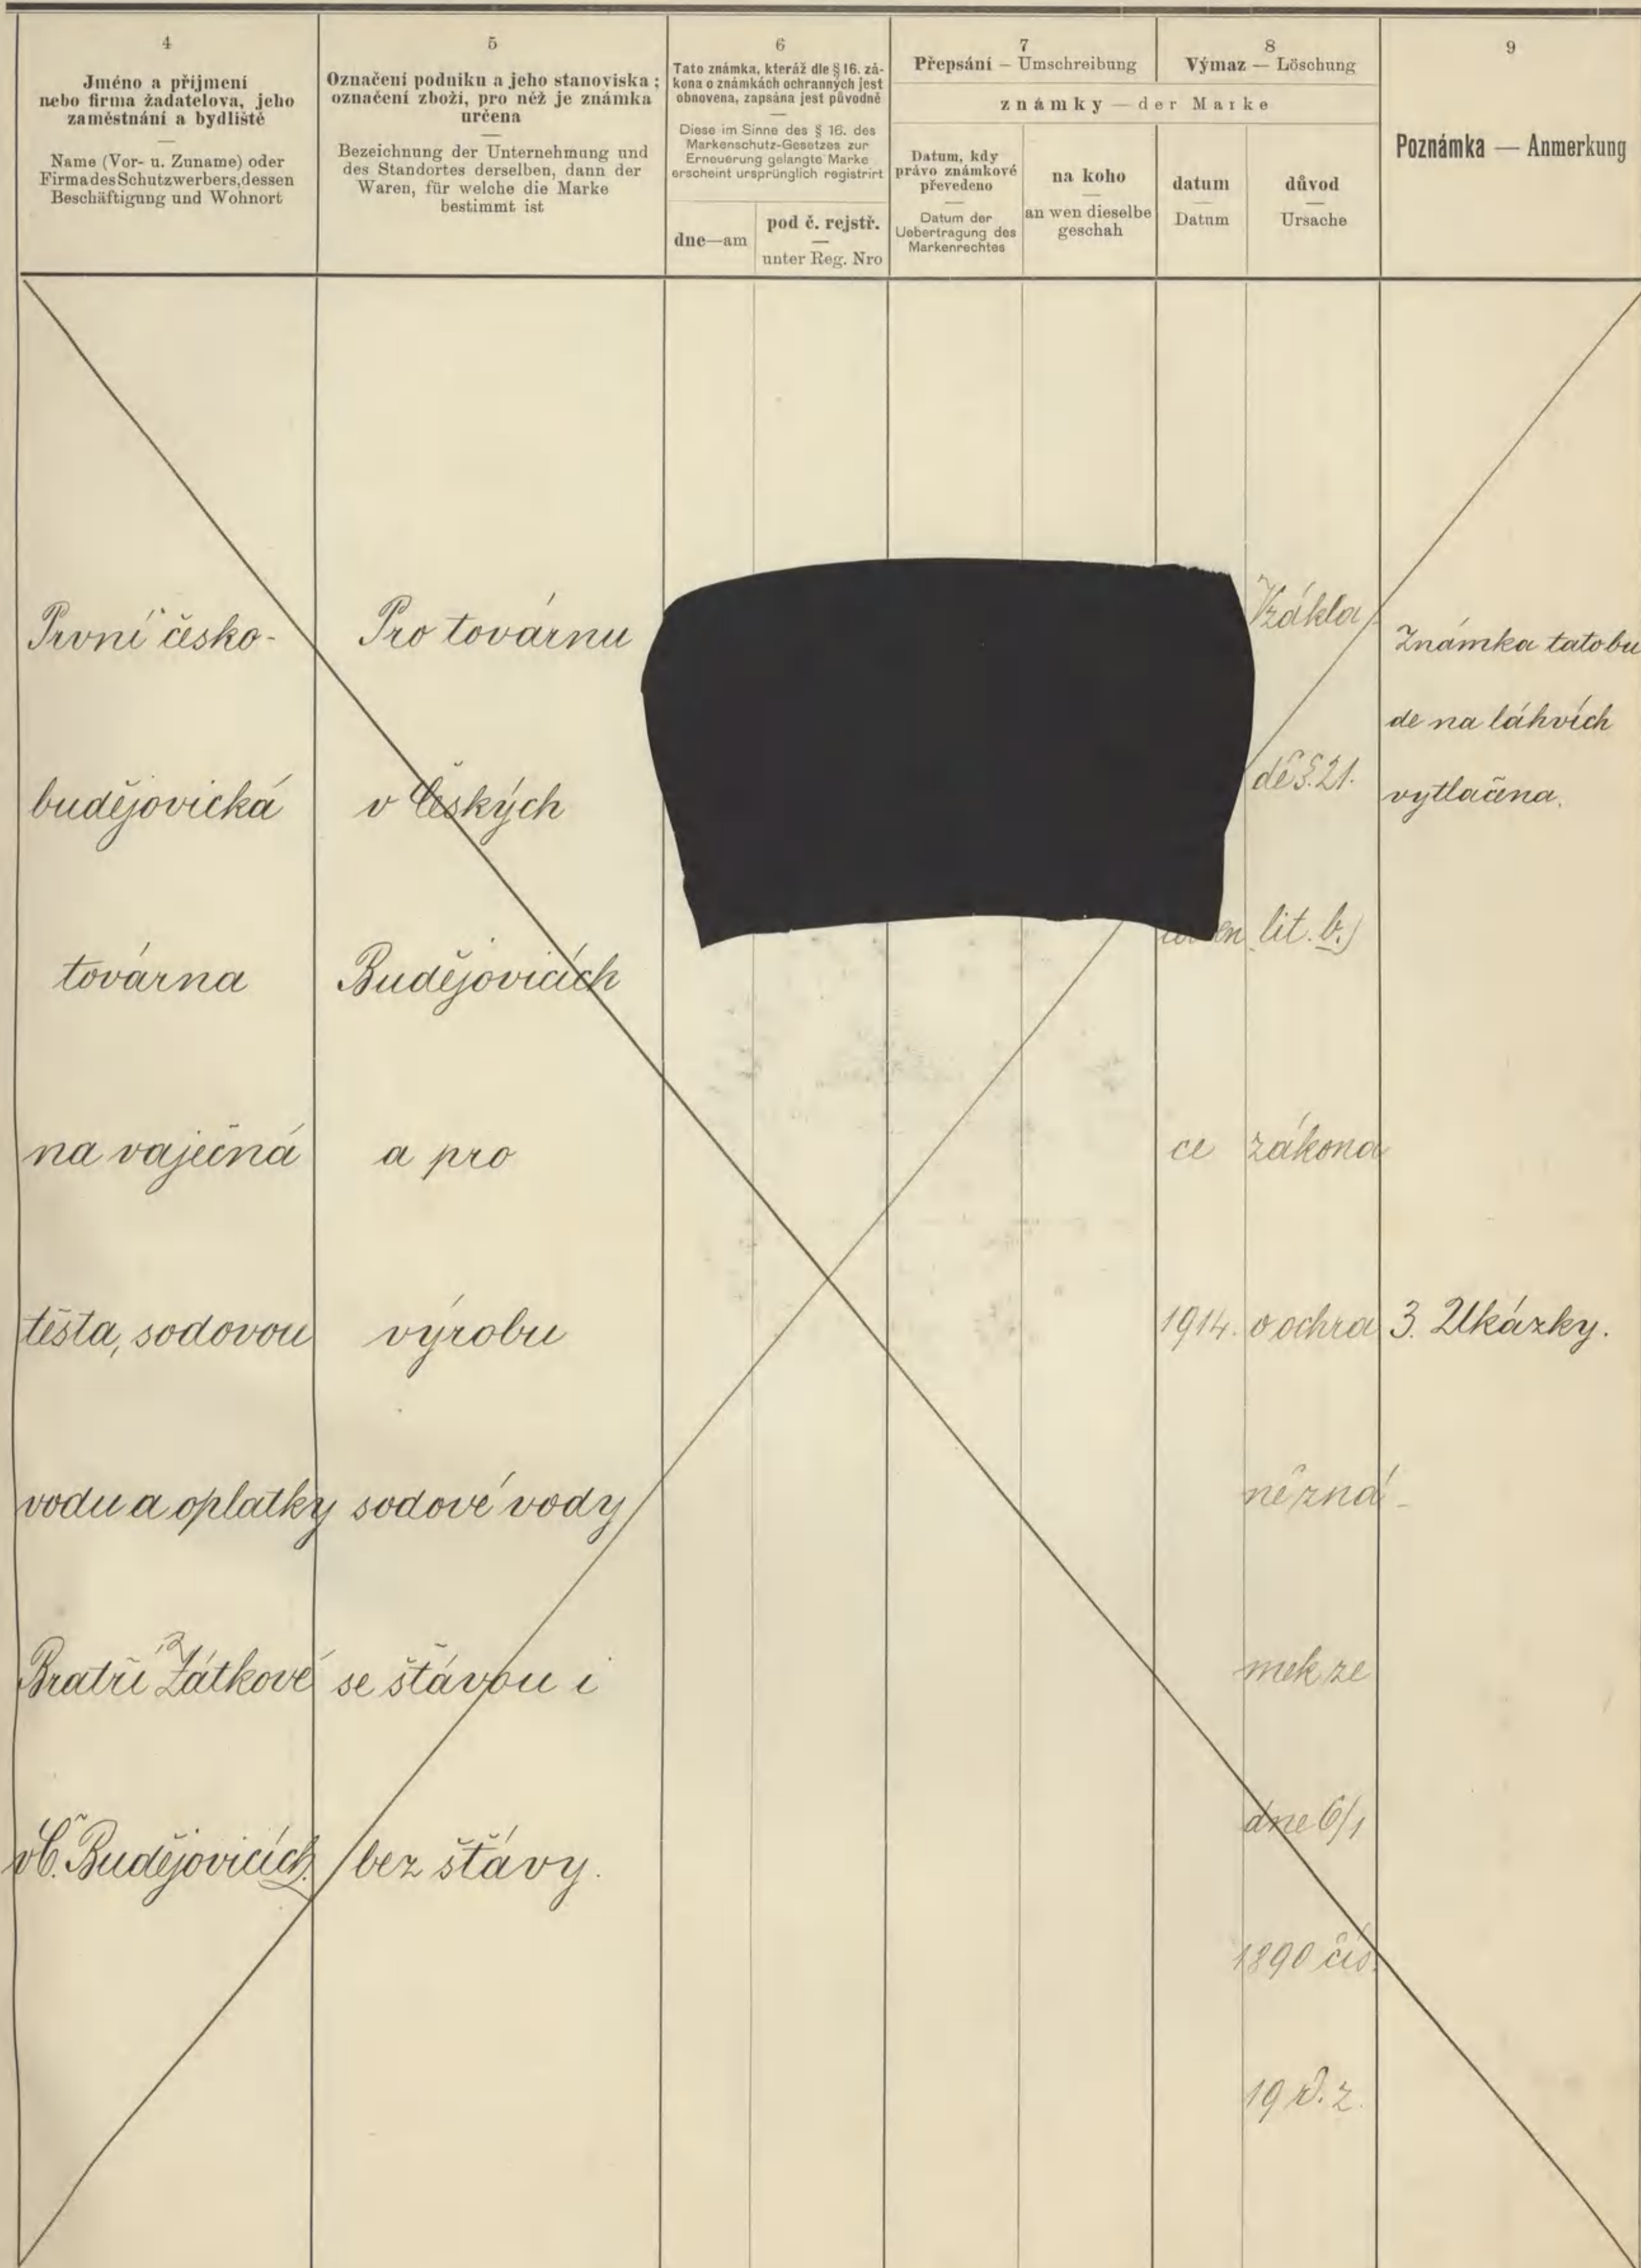 4
Jméno a příjmení
nebo firma žadatelova, jeho
zaměstnání a bydliště
Name (Vor- u. Zuname) oder
Firma des Schutzwerbers, dessen
Beschäftigung und Wohnort
5
Označení podniku a jeho stanoviska;
označení zboží, pro něž je známka
určena
Bezeichnung der Unternehmung und
des Standortes derselben, dann der
Waren, für welche die Marke
bestimmt ist
6
Tato známka, kteráž dle § 16. zá-
kona o známkách ochranných jest
obnovena, zapsána jest původně
Diese im Sinne des § 16. des
Markenschutz-Gesetzes zur
Erneuerung gelangte Marke
erscheint ursprünglich registrirt
dne—am
pod č. rejstř.
unter Reg. Nro
7
Přepsání – Umschreibung
8
Výmaz — Löschung
známky — der Marke
Datum, kdy
právo známkové
převedeno
Datum der
Uebertragung des
Markenrechtes
na koho
an wen dieselbe
geschah
datum
Datum
důvod
Ursache
9
Poznámka — Anmerkung
První česko-
budějovická
továrna
na vaječná
těsta, sodovou
vodu a oplatky
Bratří Zátkové
v Č. Budějovicích.
Pro továrnu
v Českých
Budějovicích
a pro
výrobu
sodové vody
se šťávou i
bez šťávy.
ce
1914.
Vzákla
dě §. 21.
lit. b.)
zákona
o ochra
ně zná-
mek ze
dne 6/1
1890 čís.
19 ř. z.
Známka tato bu
de na láhvích
vytlačena.
3. Ukázky.